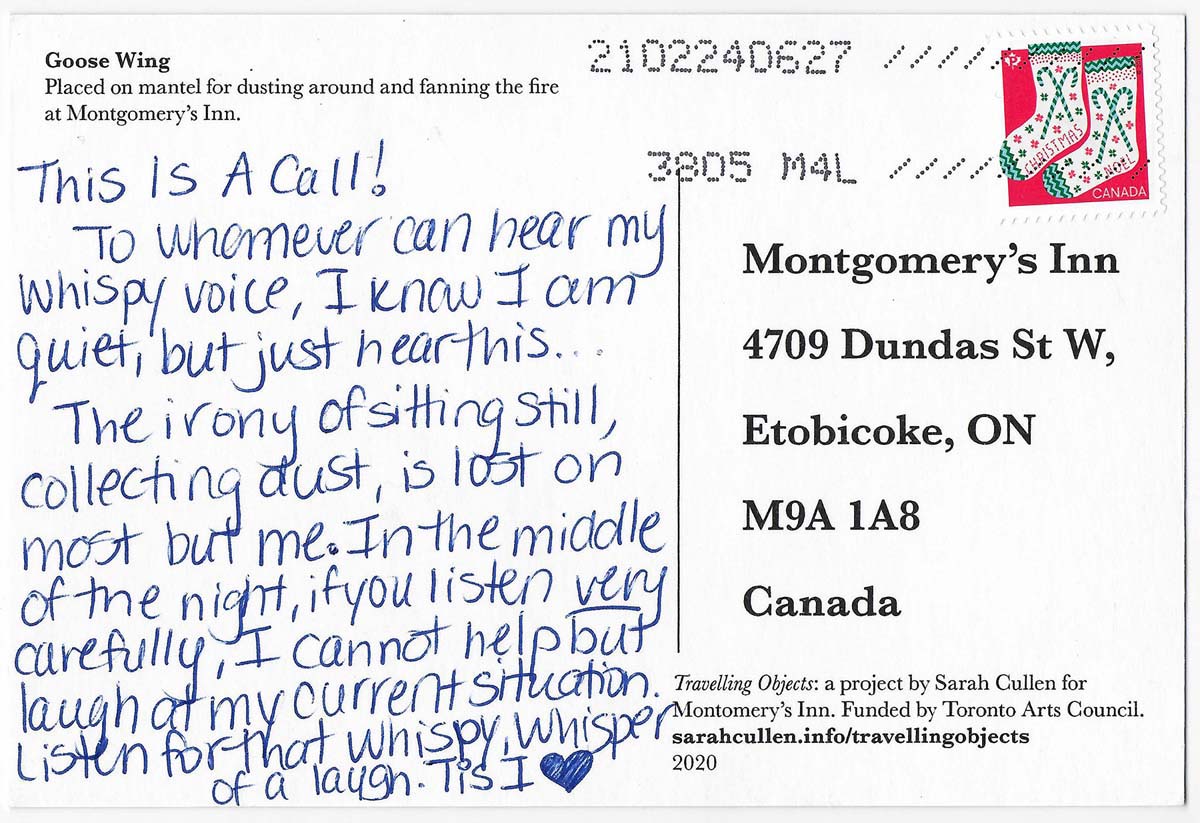 Goose Wing
Placed on mantel for dusting around and fanning the fire
at Montgomery's Inn.
2102240627 /////
3805 M4L /////
CHRISTMAS
NOEL
CANADA
P
This Is A Call!
To whomever can hear my
whispy voice, I know I am
quiet, but just hear this...
The irony of sitting still,
collecting dust, is lost on
most but me. In the middle
of the night, if you listen very
carefully, I cannot help but
laugh at my current situation.
Listen for that whispy, whisper
of a laugh. Tis I ♥
Montgomery's Inn
4709 Dundas St W,
Etobicoke, ON
M9A 1A8
Canada
Travelling Objects: a project by Sarah Cullen for
Montomery's Inn. Funded by Toronto Arts Council.
sarahcullen.info/travellingobjects
2020